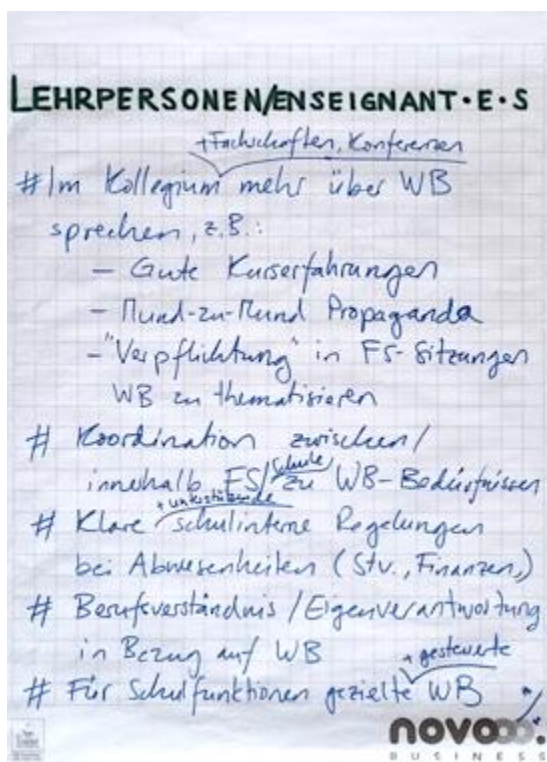 LEHRPERSONEN/ENSEIGNANT·E·S
+ Fachschaften, Konferenzen
# Im Kollegium mehr über WB
sprechen, z.B.:
– Gute Kurserfahrungen
– Mund-zu-Mund Propaganda
– "Verpflichtung" in FS-Sitzungen
WB zu thematisieren
# Koordination zwischen/
innerhalb FS/Schule/zu WB-Bedürfnissen
+ unterstützende
# Klare schulinterne Regelungen
bei Abwesenheiten (Stv., Finanzen,)
# Berufsverständnis / Eigenverantwortung
in Bezug auf WB
+ gesteuerte
# Für Schulfunktionen gezielte WB
novo
BUSINESS